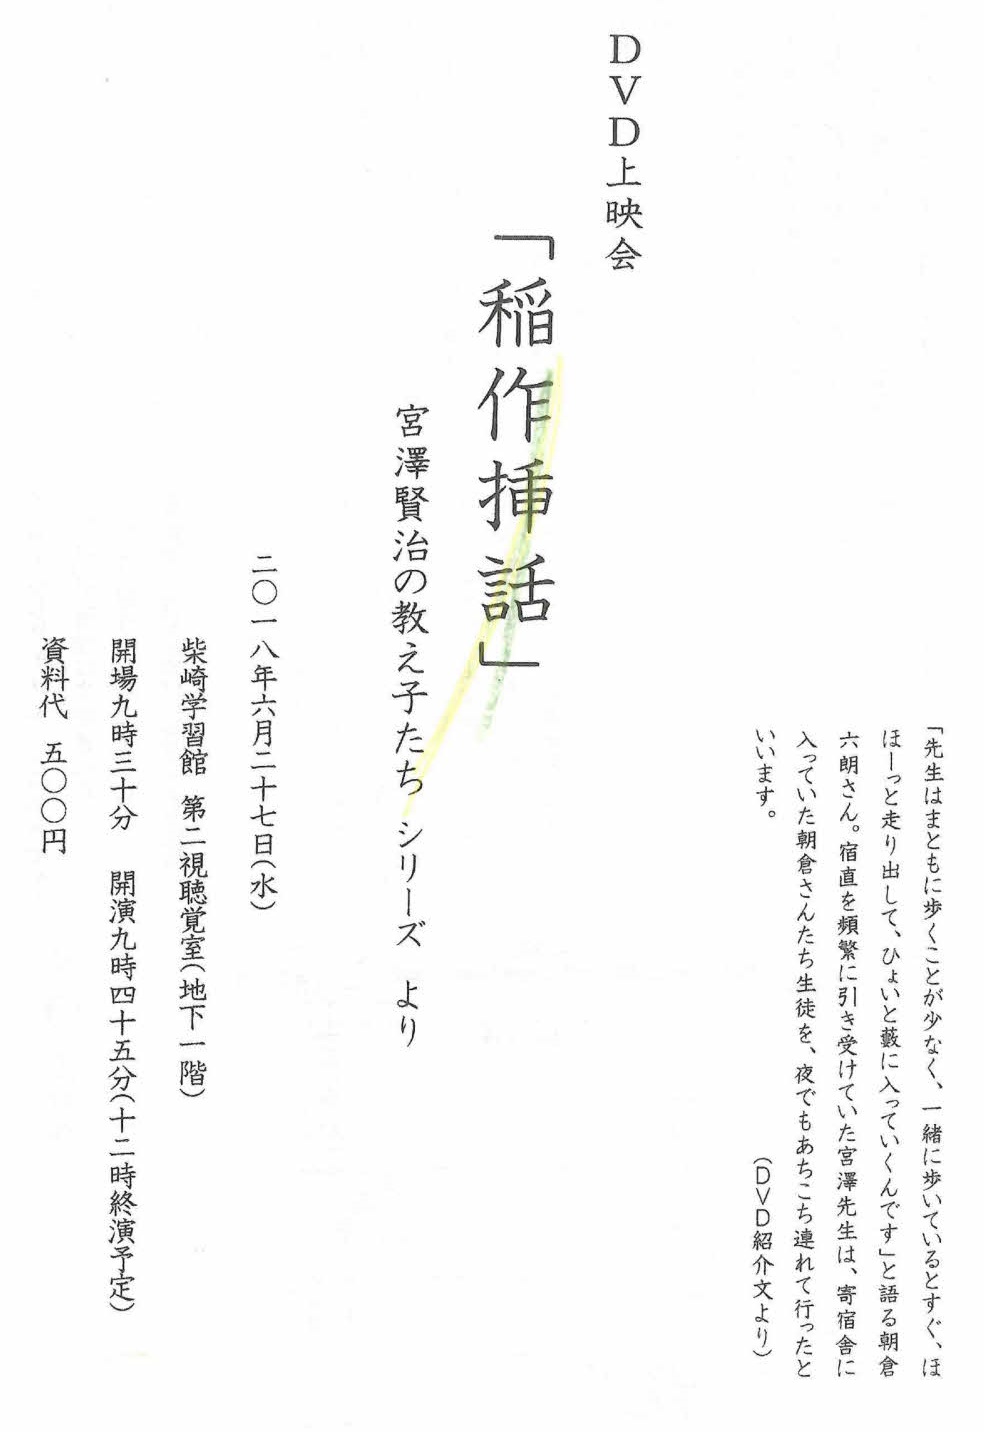 「先生はまともに歩くことが少なく、一緒に歩いているとすぐ、ほ
ほーっと走り出して、ひょいと藪に入っていくんです」と語る朝倉
六朗さん。宿直を頻繁に引き受けていた宮澤先生は、寄宿舎に
入っていた朝倉さんたち生徒を、夜でもあちこち連れて行ったと
いいます。
（DVD紹介文より）
DVD上映会
「稲作挿話」
宮澤賢治の教え子たち シリーズ より
二〇一八年六月二十七日（水）
柴崎学習館 第二視聴覚室（地下一階）
開場九時三十分 開演九時四十五分（十二時終演予定）
資料代 五〇〇円